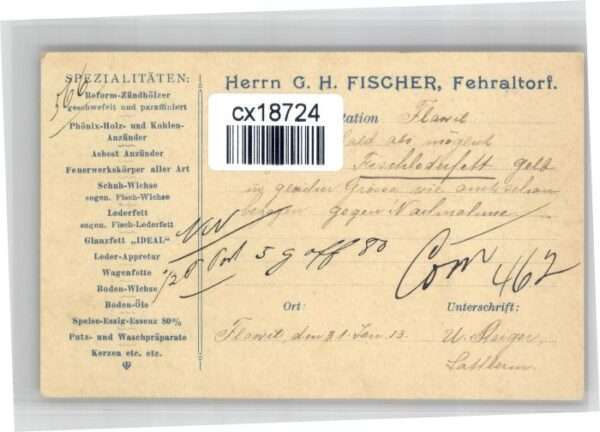 SPEZIALITÄTEN:
566
Reform-Zündhölzer
geschwefelt und paraffiniert
Phönix-Holz- und Kohlen-
Anzünder
Asbest Anzünder
Feuerwerkskörper aller Art
Schuh-Wichse
sogen. Fisch-Wichse
Lederfett
sogen. Fisch-Lederfett
Glanzfett „IDEAL“
Leder-Appretur
Wagenfette
Boden-Wichse
Boden-Öls
Speise-Essig-Essenz 80%
Putz- und Waschpräparate
Kerzen etc. etc.
Herrn G. H. FISCHER, Fehraltorf.
cx18724
tation Flawil
bald als möglich
Fischlederfett gelb
in gleicher Grösse wie
gegen Nachnahme
5 g off 80
Com 462
Ort:
Unterschrift:
Flawil, den 21. Jan. 13.
U. Steiger,
Sattlerm.